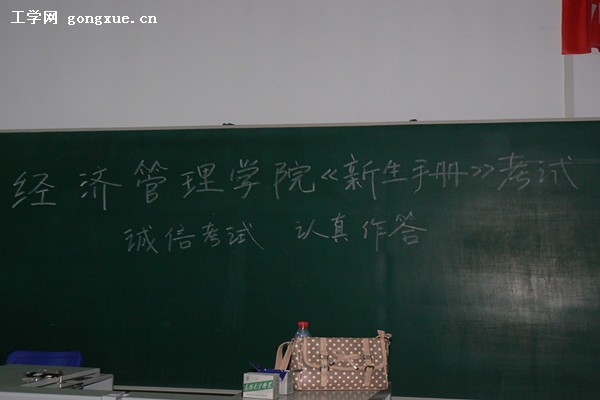 工学网 gongxue.cn
经济管理学院《新生手册》考试
诚信考试 认真作答